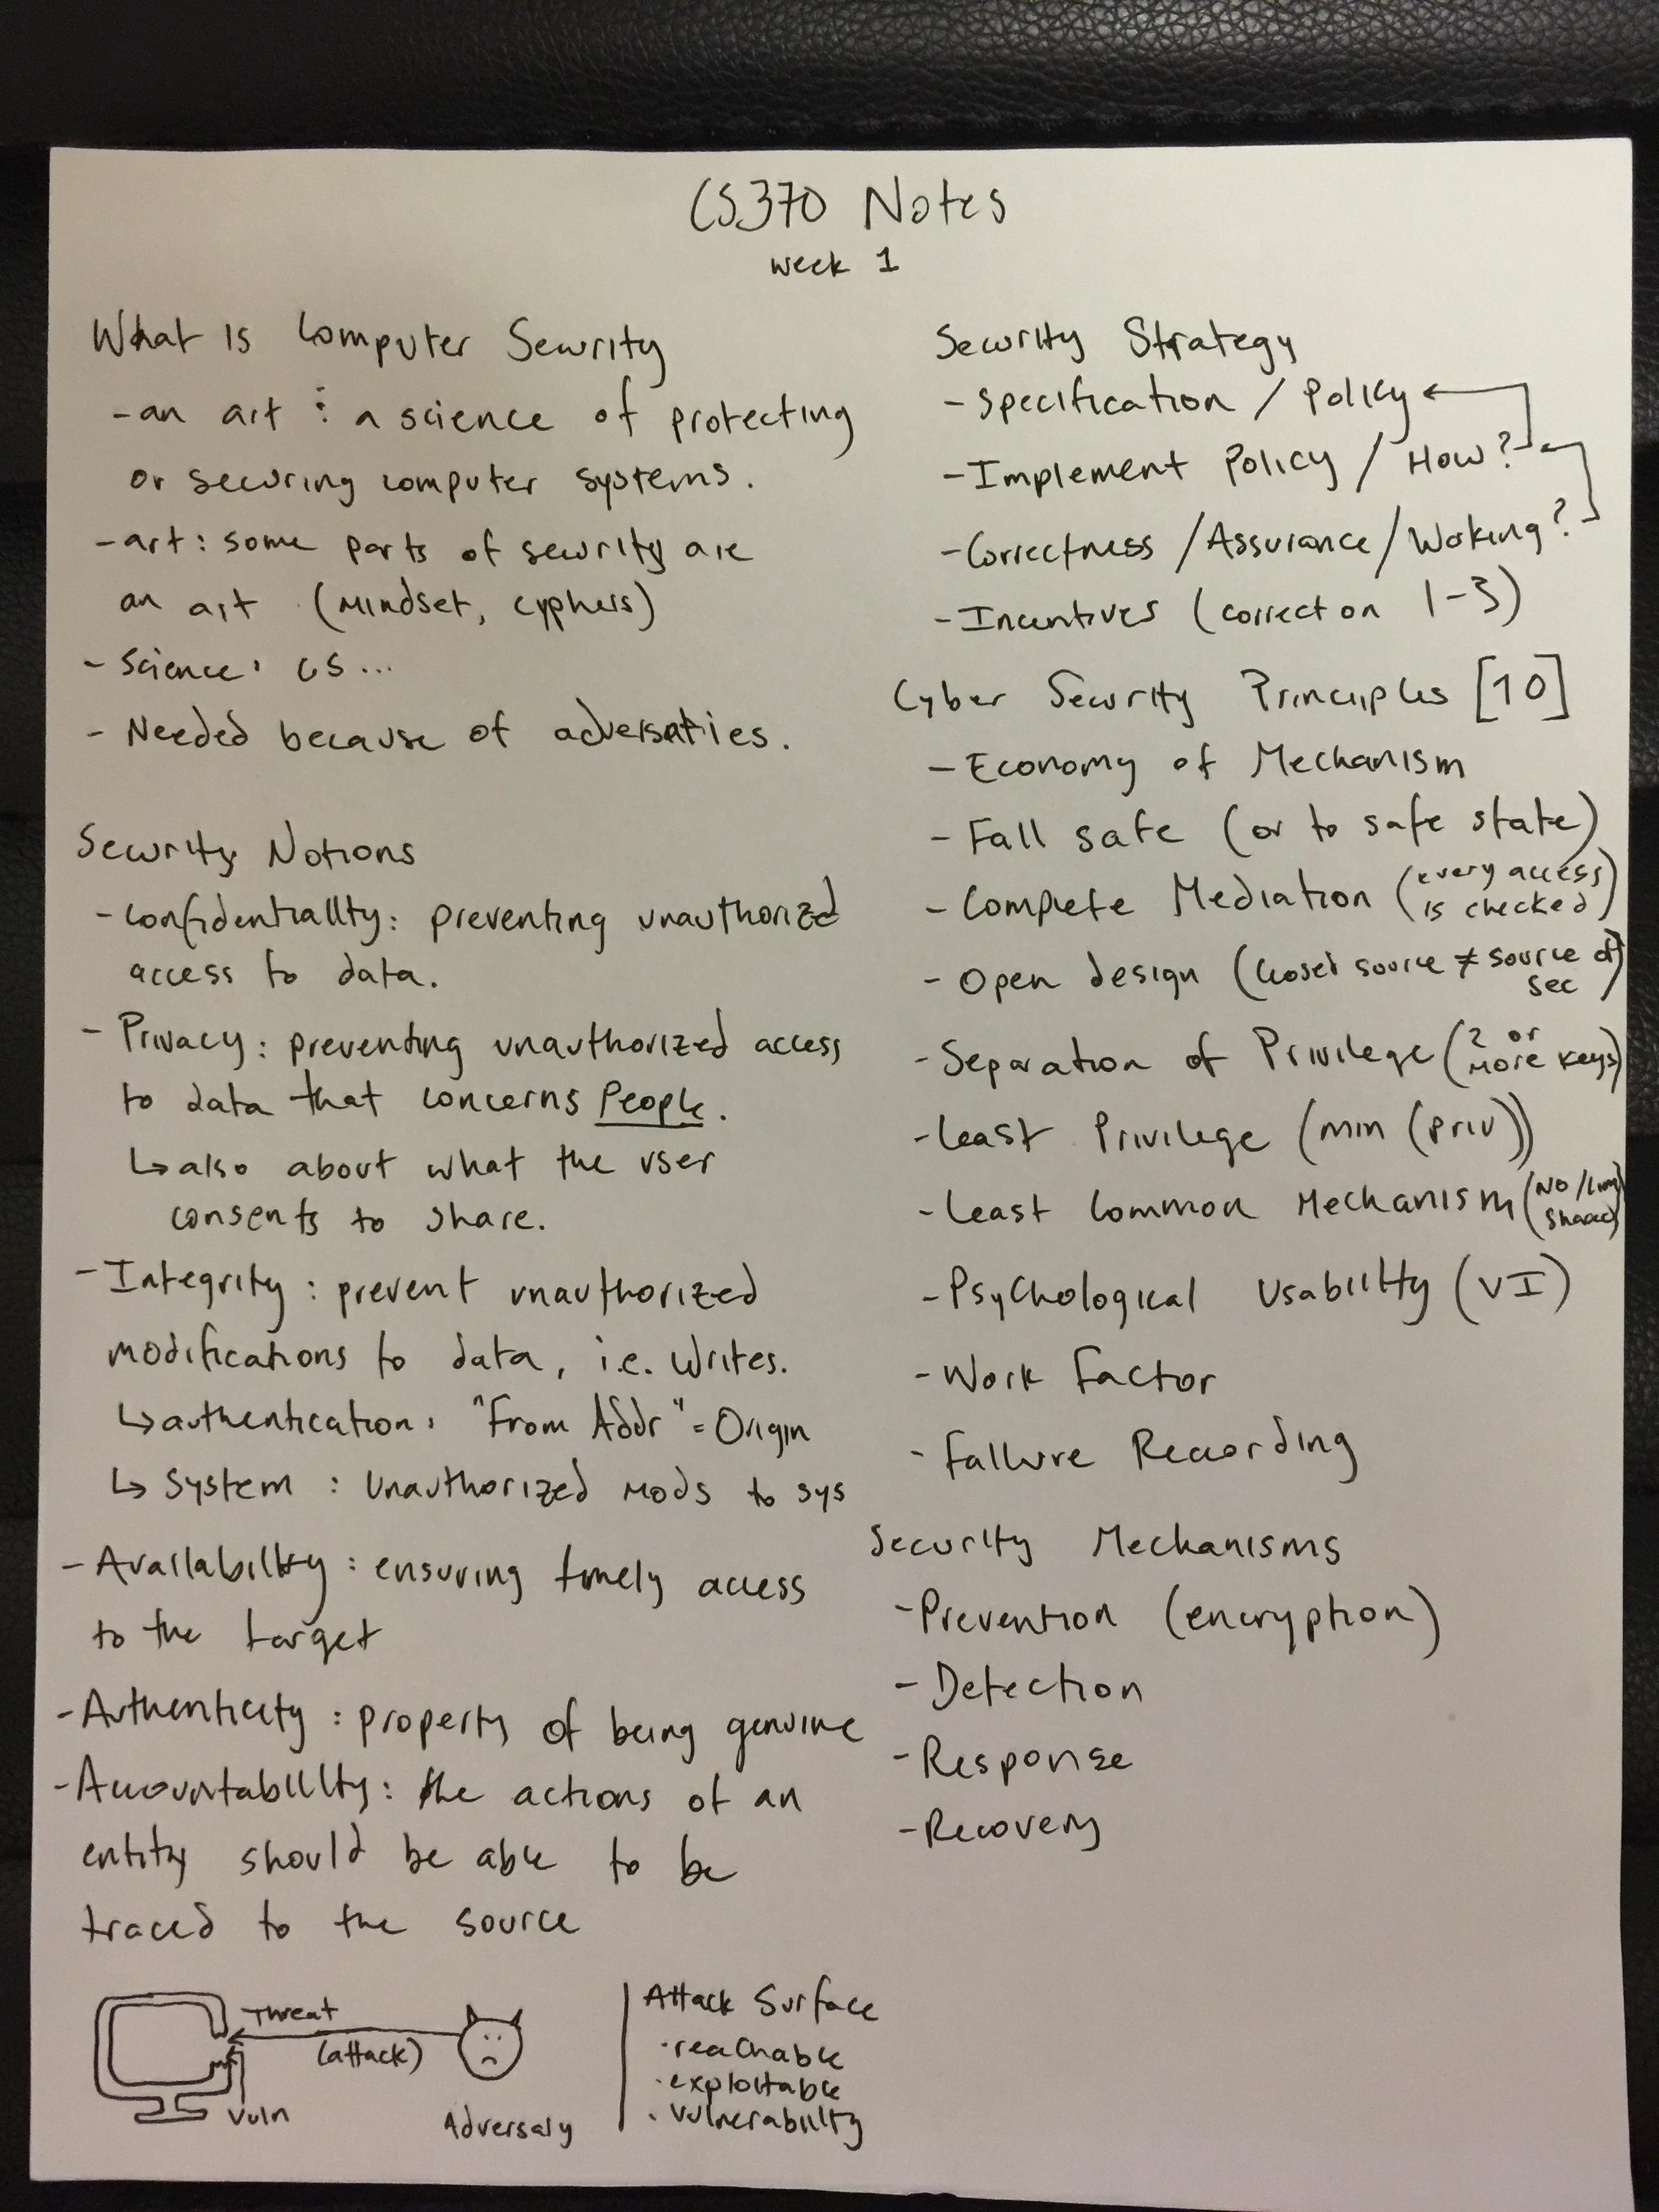 CS370 Notes
week 1
What Is Computer Security
- an art : a science of protecting
or securing computer systems.
- art: some parts of security are
an art (mindset, cyphers)
- Science: CS...
- Needed because of adversaties.
Security Notions
- Confidentiality: preventing unauthorized
access to data.
- Privacy: preventing unauthorized access
to data that concerns People.
↳ also about what the user
consents to share.
- Integrity: prevent unauthorized
modifications to data, i.e. writes.
↳ authentication: "From Addr" = Origin
↳ System: Unauthorized mods to sys
- Availability: ensuring timely access
to the target
- Authenticity: property of being genuine
- Accountability: the actions of an
entity should be able to be
traced to the source
Threat
(attack)
Vuln
Adversary
Attack Surface
· reachable
· exploitable
· vulnerability
Security Strategy
- Specification / Policy
- Implement Policy / How?
- Correctness / Assurance / Woking?
- Incentives (correct on 1-3)
Cyber Security Principles [10]
- Economy of Mechanism
- Fail safe (or to safe state)
- Complete Mediation (every access
is checked)
- Open design (closed source ≠ source of
sec)
- Separation of Privilege (2 or
more keys)
- Least Privilege (min (priv))
- Least Common Mechanism (No/Lim
shared)
- Psychological Usability (UI)
- Work Factor
- Failure Recording
Security Mechanisms
- Prevention (encryption)
- Detection
- Response
- Recovery